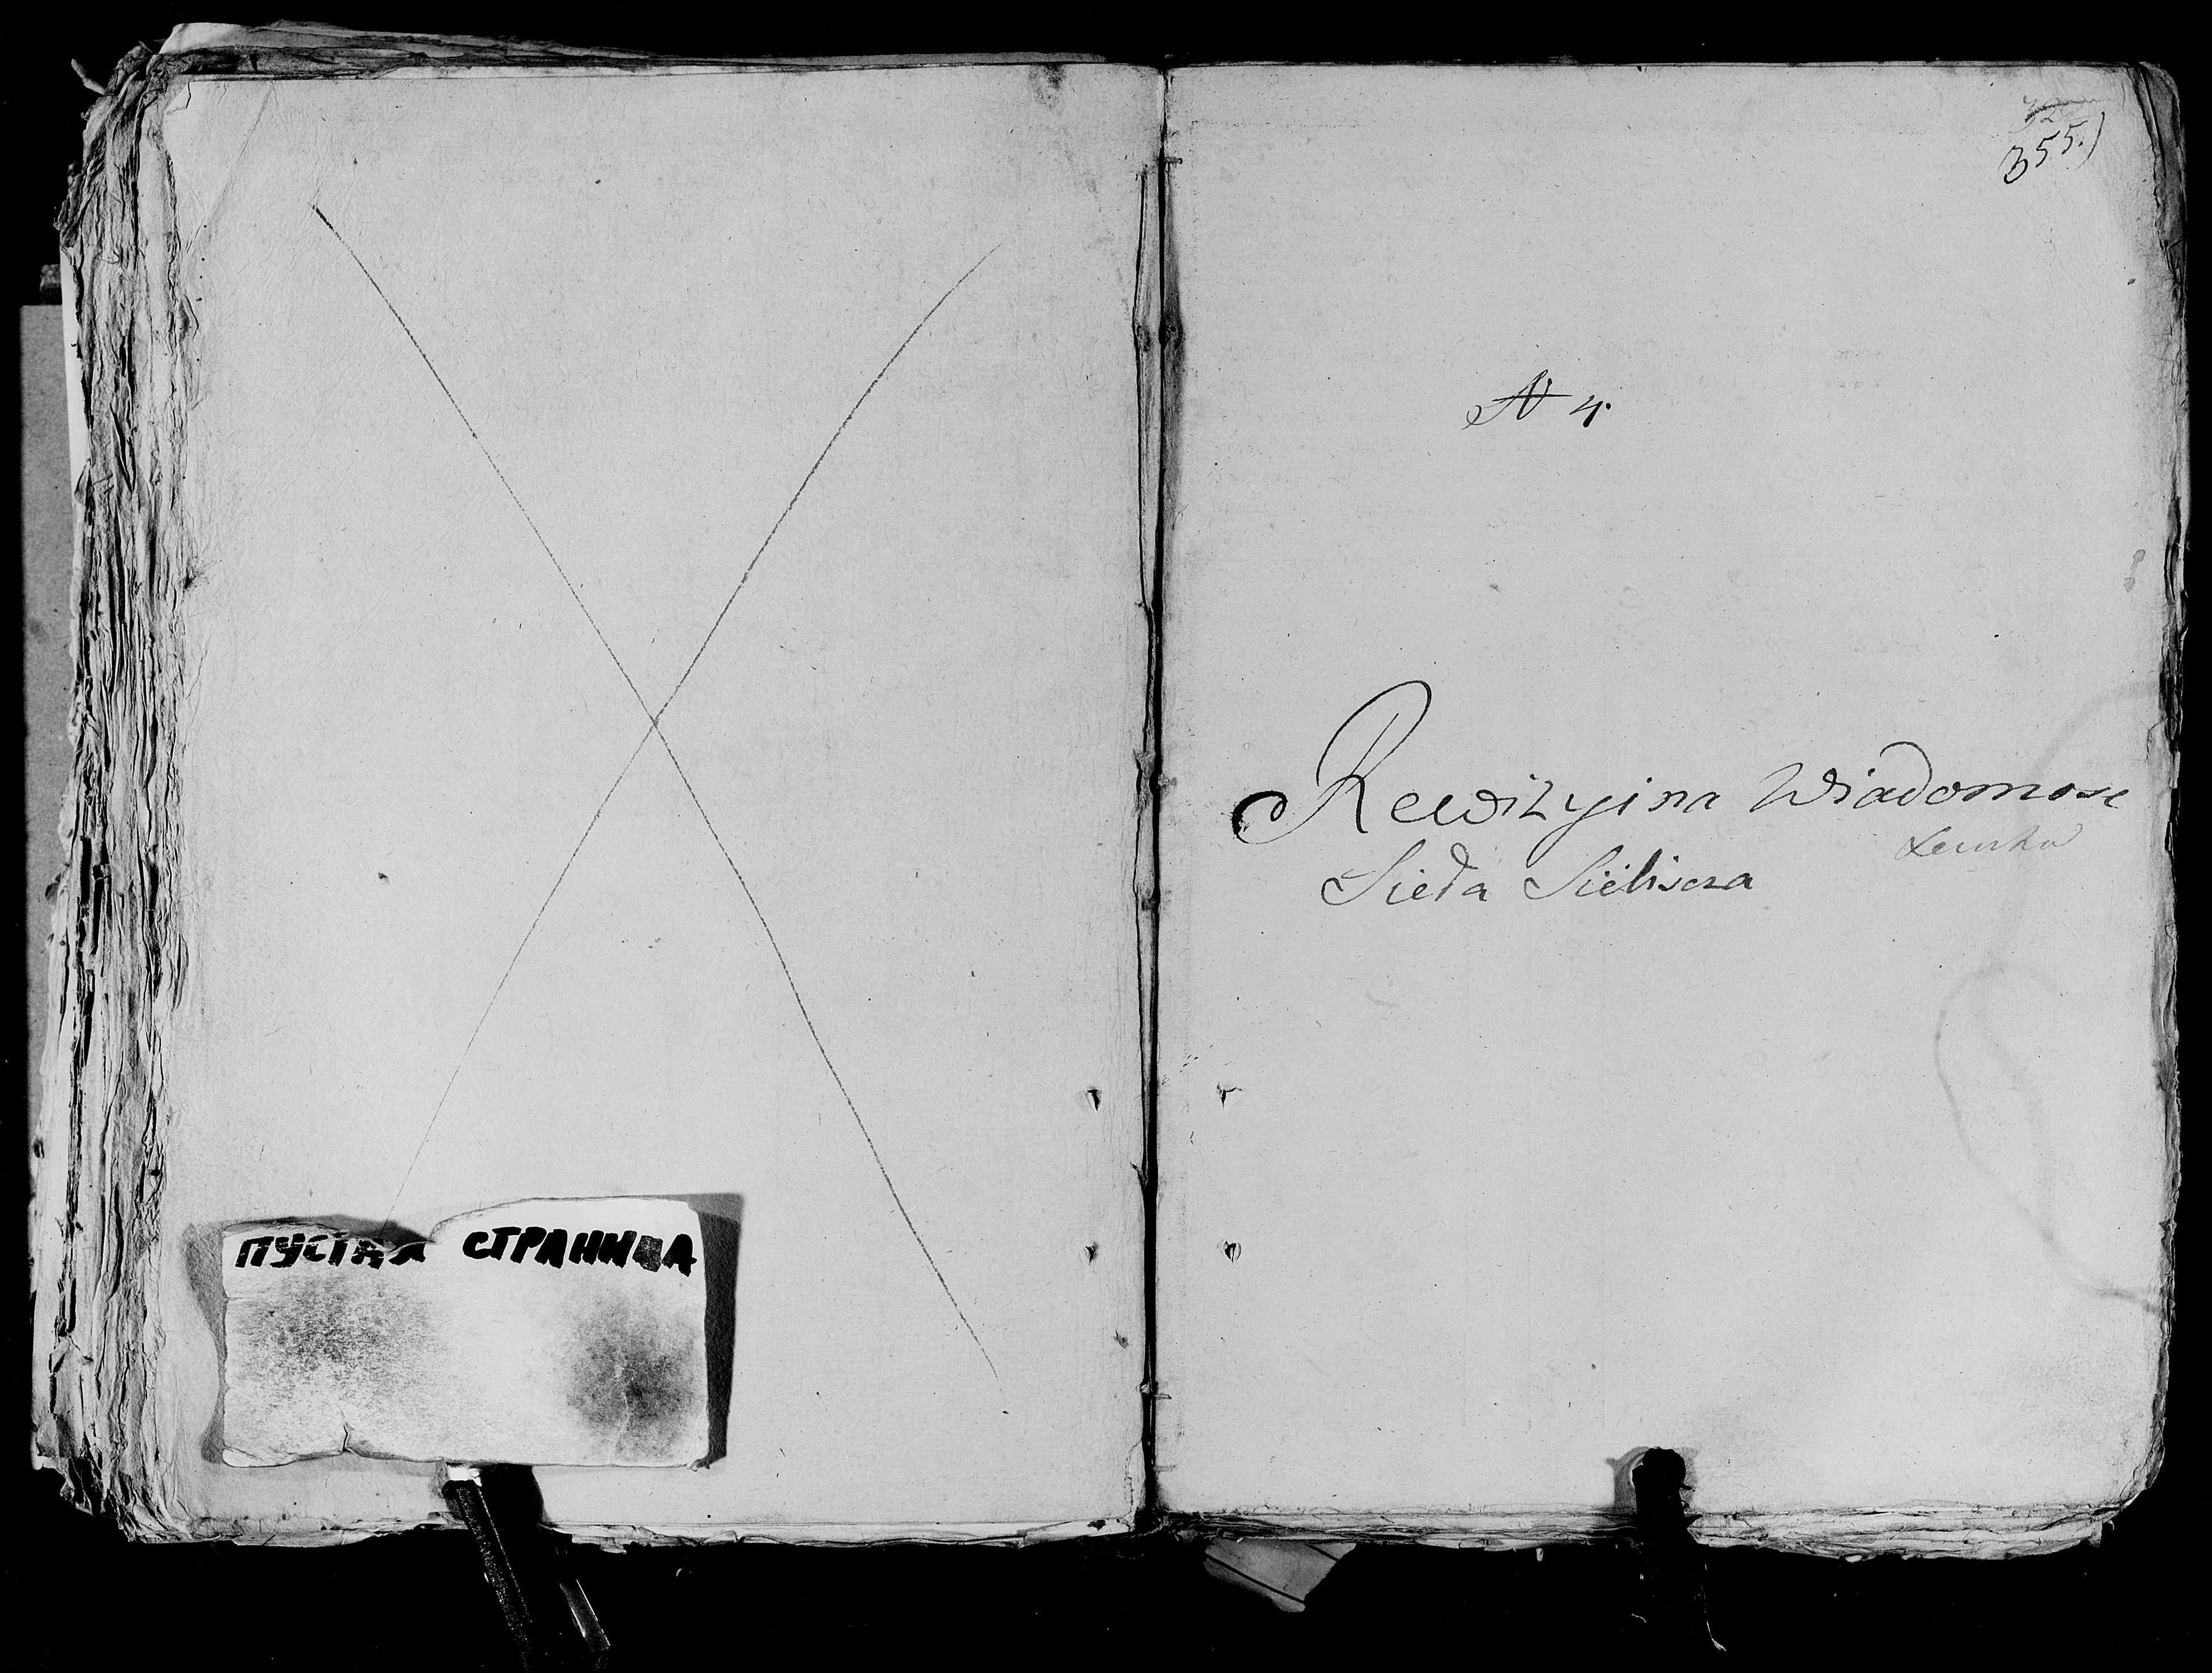 ПУСТАЯ СТРАНИЦА
355.)
N 4.
Rewizyina Wiadomosc
Sieła Sieliscza